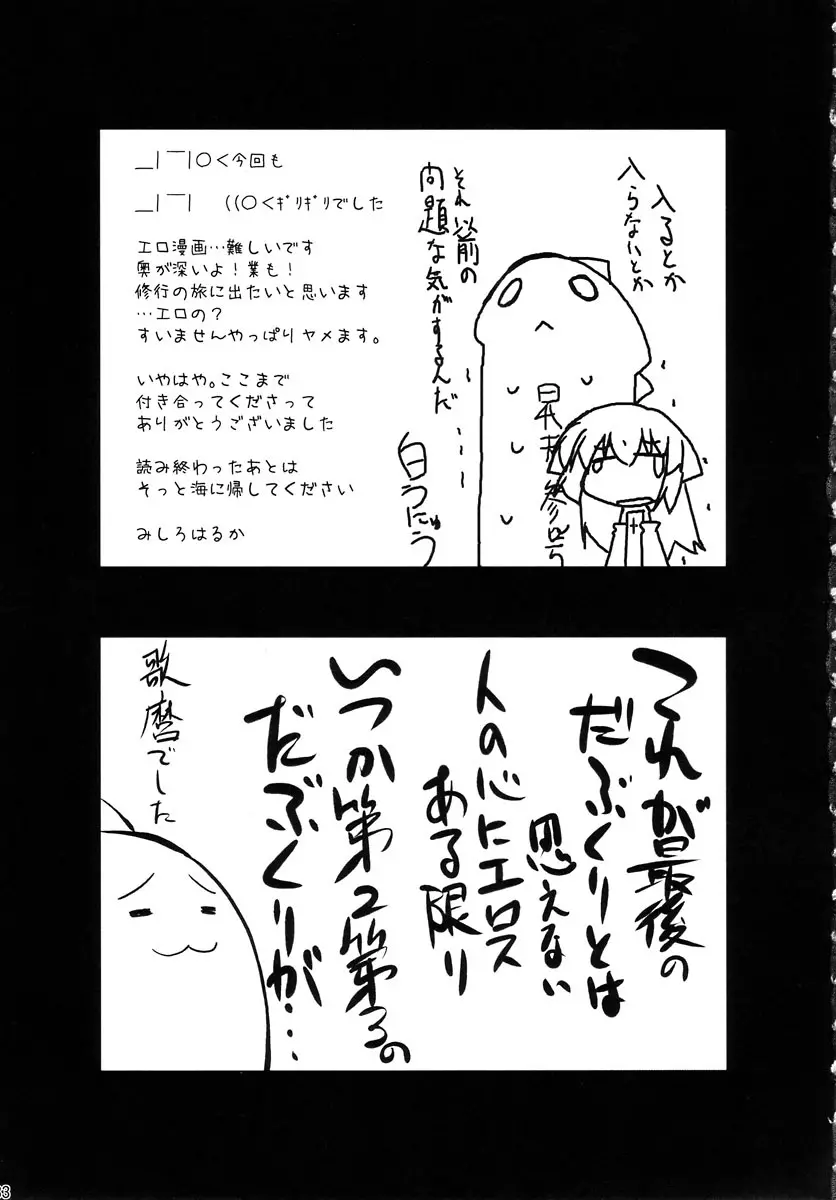 _|￣|○<今回も
_|￣|　((○<ｷﾞﾘｷﾞﾘでした
エロ漫画…難しいです
奥が深いよ！業も！
修行の旅に出たいと思います
…エロの？
すいませんやっぱりヤメます。
いやはや。ここまで
付き合ってくださって
ありがとうございました
読み終わったあとは
そっと海に帰してください
みしろはるか
入るとか
入らないとか
それ以前の
問題な気がするんだ……
白うにゅう
これが最後の
だぶくりとは
思えない
人の心にエロス
ある限り
いつか第2第3の
だぶくりが…
歌麿でした